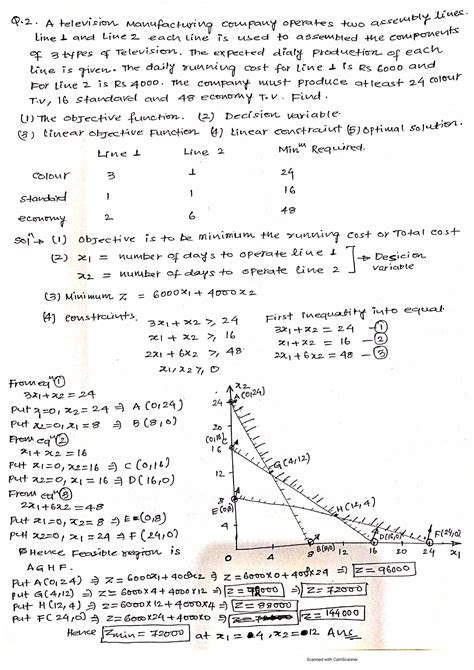 Q.2. A television Manufacturing company operates two assembly lines.
Line 1 and Line 2 each line is used to assembled the components
of 3 types of Television. The expected dialy production of each
line is given. The daily running cost for line 1 is Rs 6000 and
For Line 2 is Rs 4000. The company must produce atleast 24 colour
T.V, 16 standard and 48 economy T.V. Find.
(1) The objective function. (2) Decision variable.
(3) Linear objective Function (4) Linear constraint (5) Optimal solution.
Line 1 Line 2 Minm Required.
colour 3 1 24
standard 1 1 16
economy 2 6 48
Soln → (1) objective is to be minimum the running cost or Total cost
(2) x1 = number of days to operate line 1
x2 = number of days to operate line 2
→ Desicion variable
(3) Minimum Z = 6000x1 + 4000x2
(4) constraints.
3x1 + x2 ≥ 24
x1 + x2 ≥ 16
2x1 + 6x2 ≥ 48
x1, x2 ≥ 0
First inequality into equal
3x1 + x2 = 24 - ①
x1 + x2 = 16 - ②
2x1 + 6x2 = 48 - ③
From eqn ①
3x1 + x2 = 24
Put x1=0, x2=24 ⇒ A (0,24)
Put x2=0, x1=8 ⇒ B (8,0)
From eqn ②
x1 + x2 = 16
Put x1=0, x2=16 ⇒ C (0,16)
Put x2=0, x1=16 ⇒ D (16,0)
From eqn ③
2x1 + 6x2 = 48
Put x1=0, x2=8 ⇒ E=(0,8)
Put x2=0, x1=24 ⇒ F (24,0)
x2
24 A(0,24)
20
16
G(4,12)
8
E(0,8)
H(12,4)
4
D(16,0)
F(24,0)
0 4 8 B(8,0) 12 16 20 24 x1
Hence Feasible region is
A G H F.
Put A(0,24) ⇒ Z = 6000x1 + 4000x2 ⇒ Z = 6000x0 + 4000x24 ⇒ Z = 96000
Put G(4,12) ⇒ Z = 6000x4 + 4000x12 ⇒ Z = 72000
Put H(12,4) ⇒ Z = 6000x12 + 4000x4 ⇒ Z = 88000
Put F(24,0) ⇒ Z = 6000x24 + 4000x0 ⇒ Z = 144000
Hence Zmin = 72000 at x1 = 4, x2 = 12 Ans
Scanned with CamScanner